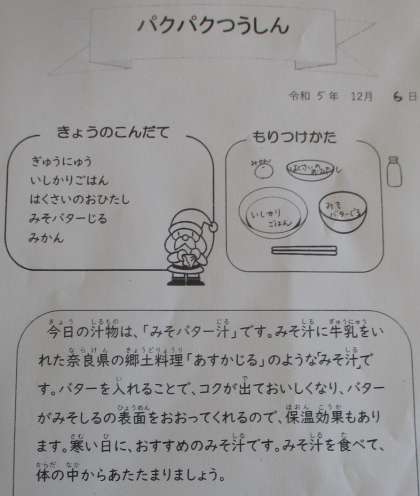 パクパクつうしん
令和 5年 12月 6日
きょうのこんだて
ぎゅうにゅう
いしかりごはん
はくさいのおひたし
みそバターじる
みかん
もりつけかた
みかん
はくさいのおひたし
いしかりごはん
みそバターじる
今日の汁物は、「みそバター汁」です。みそ汁に牛乳をい
れた奈良県の郷土料理「あすかじる」のような「みそ汁」で
す。バターを入れることで、コクが出ておいしくなり、バター
がみそしるの表面をおおってくれるので、保温効果もあり
ます。寒い日に、おすすめのみそ汁です。みそ汁を食べて、
体の中からあたたまりましょう。